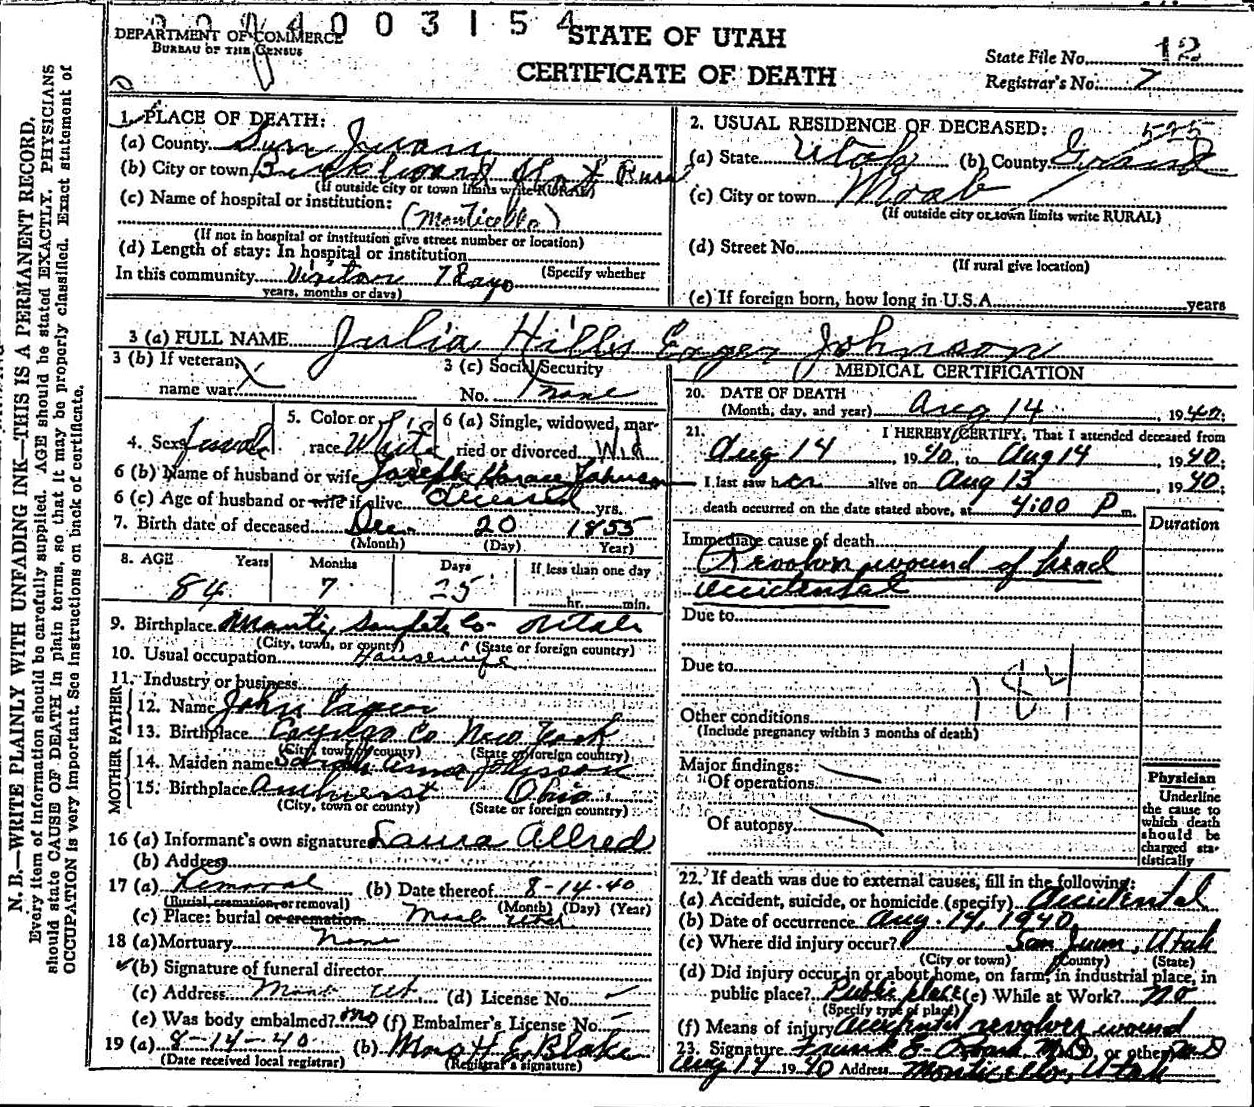 4003154
DEPARTMENT OF COMMERCE
BUREAU OF THE CENSUS
STATE OF UTAH
CERTIFICATE OF DEATH
State File No. 12
Registrar's No. 7
N. B.—WRITE PLAINLY WITH UNFADING INK—THIS IS A PERMANENT RECORD.
Every item of information should be carefully supplied. AGE should be stated EXACTLY. PHYSICIANS
should state CAUSE OF DEATH in plain terms, so that it may be properly classified. Exact statement of
OCCUPATION is very important. See instructions on back of certificate.
1. PLACE OF DEATH:
(a) County San Juan
(b) City or town Rural
(If outside city or town limits write RURAL)
(c) Name of hospital or institution:
(Monticello)
(If not in hospital or institution give street number or location)
(d) Length of stay: In hospital or institution
In this community Visitor 7 days (Specify whether
years, months or days)
2. USUAL RESIDENCE OF DECEASED: 525
(a) State Utah (b) County Grand
(c) City or town Moab
(If outside city or town limits write RURAL)
(d) Street No.
(If rural give location)
(e) If foreign born, how long in U.S.A. years
3 (a) FULL NAME Julia Hills Eager Johnson
3 (b) If veteran,
name war
3 (c) Social Security
No. none
4. Sex female
5. Color or
race White
6 (a) Single, widowed, mar-
ried or divorced Wid
6 (b) Name of husband or wife Joseph Horace Johnson
6 (c) Age of husband or wife if alive deceased yrs.
7. Birth date of deceased Dec 20 1855
(Month) (Day) Year)
8. AGE Years Months Days If less than one day
84 7 25 hr. min.
9. Birthplace Manti, Sanpete Co- Utah
(City, town, or county) (State or foreign country)
10. Usual occupation Housewife
11. Industry or business
FATHER
12. Name John Eager
13. Birthplace Cayuga Co New York
(City, town or county) (State or foreign country)
MOTHER
14. Maiden name Sarah Ann Johnson
15. Birthplace Amherst Ohio
(City, town or county) (State or foreign country)
16 (a) Informant's own signature Laura Allred
(b) Address
17 (a) Removal (b) Date thereof 8-14-40
(Burial, cremation, or removal) (Month) (Day) (Year)
(c) Place: burial or cremation Moab Utah
18 (a) Mortuary None
(b) Signature of funeral director
(c) Address Moab Ut. (d) License No.
(e) Was body embalmed? no (f) Embalmer's License No.
19 (a) 8-14-40 (b) Blake
(Date received local registrar) (Registrar's signature)
MEDICAL CERTIFICATION
20. DATE OF DEATH
(Month, day, and year) Aug 14, 1940;
21. I HEREBY CERTIFY, That I attended deceased from
Aug 14, 1940, to Aug 14, 1940;
I last saw her alive on Aug 13, 1940;
death occurred on the date stated above, at 4:00 P m.
Duration
Immediate cause of death
Revolver wound of head
accidental
Due to
Due to
184
Other conditions
(Include pregnancy within 3 months of death)
Major findings:
Of operations
Of autopsy
Physician
Underline
the cause to
which death
should be
charged sta-
tistically
22. If death was due to external causes, fill in the following:
(a) Accident, suicide, or homicide (specify) Accidental
(b) Date of occurrence Aug. 14, 1940
(c) Where did injury occur? San Juan, Utah
(City or town) (County) (State)
(d) Did injury occur in or about home, on farm, in industrial place, in
public place? Public place (e) While at Work? no
(Specify type of place)
(f) Means of injury Accidental revolver wound
23. Signature M.D. or other MD
Aug 14 1940 Address Monticello, Utah